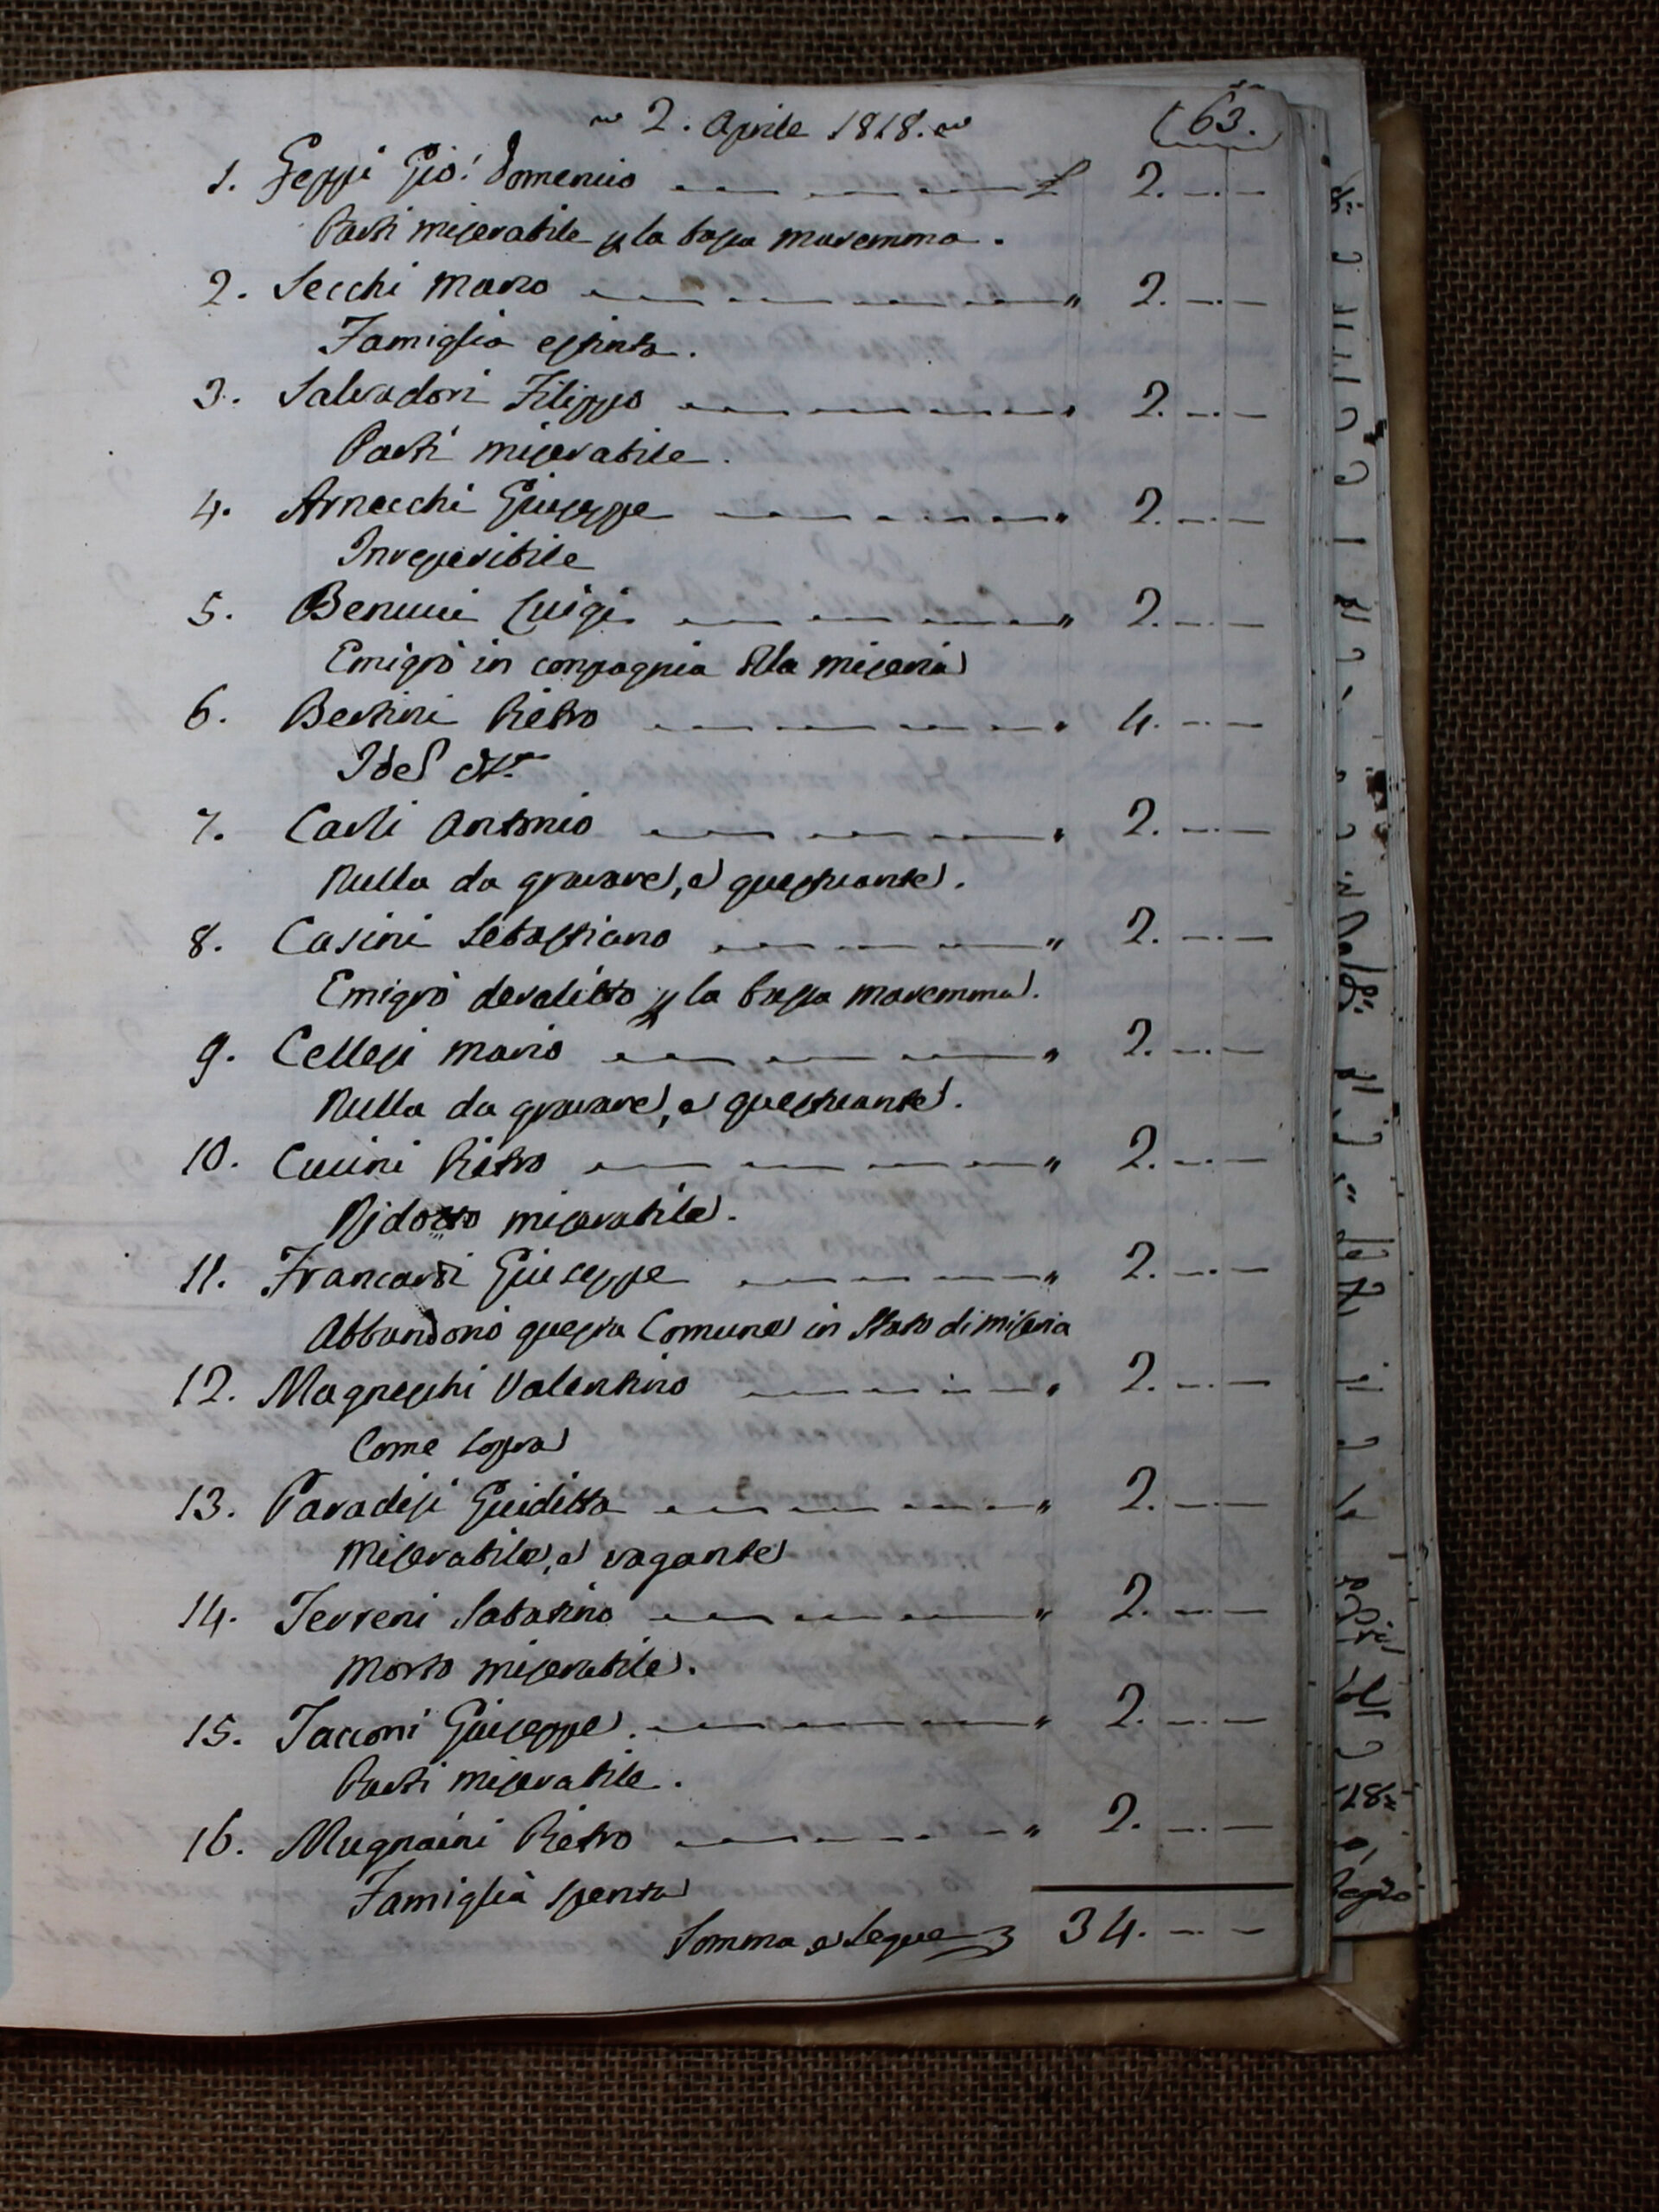 ~ 2. Aprile 1818. ~ 63.
1. Geppi Gio: Domenico £ 2. — . —
Partì miserabile p la bassa maremma.
2. Secchi Mario " 2. — . —
Famiglia estinta.
3. Salvadori Filippo " 2. — . —
Partì miserabile.
4. Arnecchi Giuseppe " 2. — . —
Inreperibile
5. Benucci Luigi " 2. — . —
Emigrò in conpagnia della miseria
6. Bertini Pietro " 4. — . —
7. Carli Antonio " 2. — . —
Nulla da gravare, e questuante.
8. Casini Sebastiano " 2. — . —
Emigrò derelitto p la bassa maremma.
9. Cellesi Mario " 2. — . —
Nulla da gravare, e questuante.
10. Cucini Pietro " 2. — . —
Ridotto miserabile.
11. Francardi Giuseppe " 2. — . —
Abbandonò questa Comune in Stato di miseria
12. Magneschi Valentino " 2. — . —
Come Sopra
13. Paradisi Guiditta " 2. — . —
Miserabile, e vagante
14. Terreni Sabatino " 2. — . —
Morto miserabile.
15. Tacconi Giuseppe. " 2. — . —
Partì miserabile.
16. Mugnaini Pietro " 2. — . —
Famiglia spenta
Somma e Segue 34. — . —